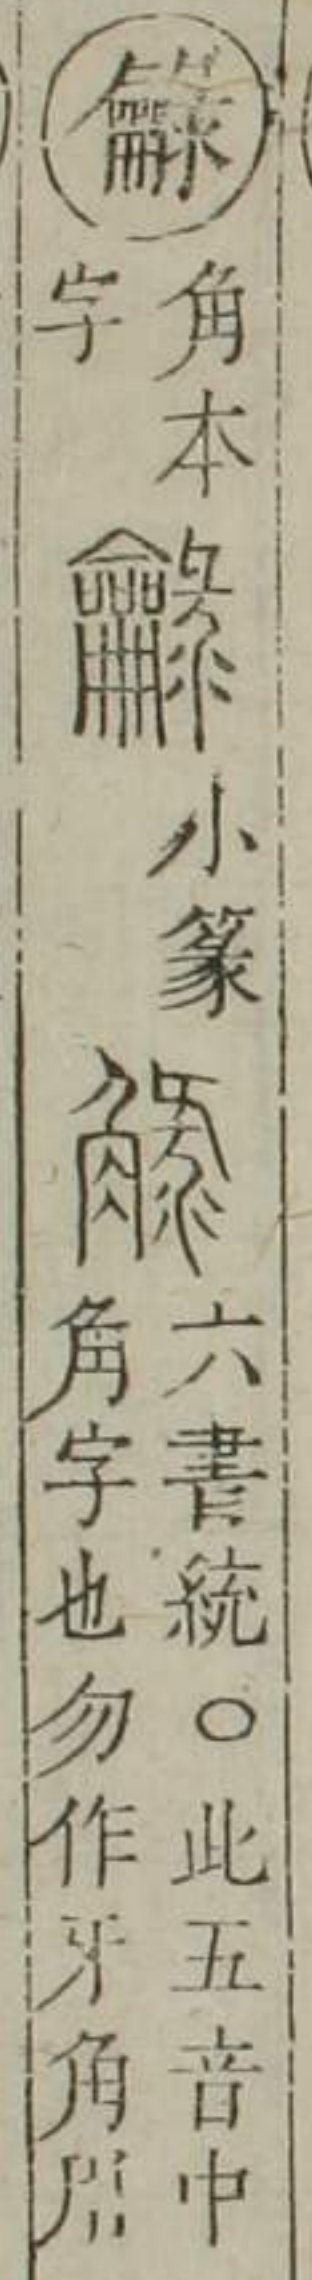 龣
角本
字
龣
小篆
觮
六書統○此五音中
角字也勿作牙角用